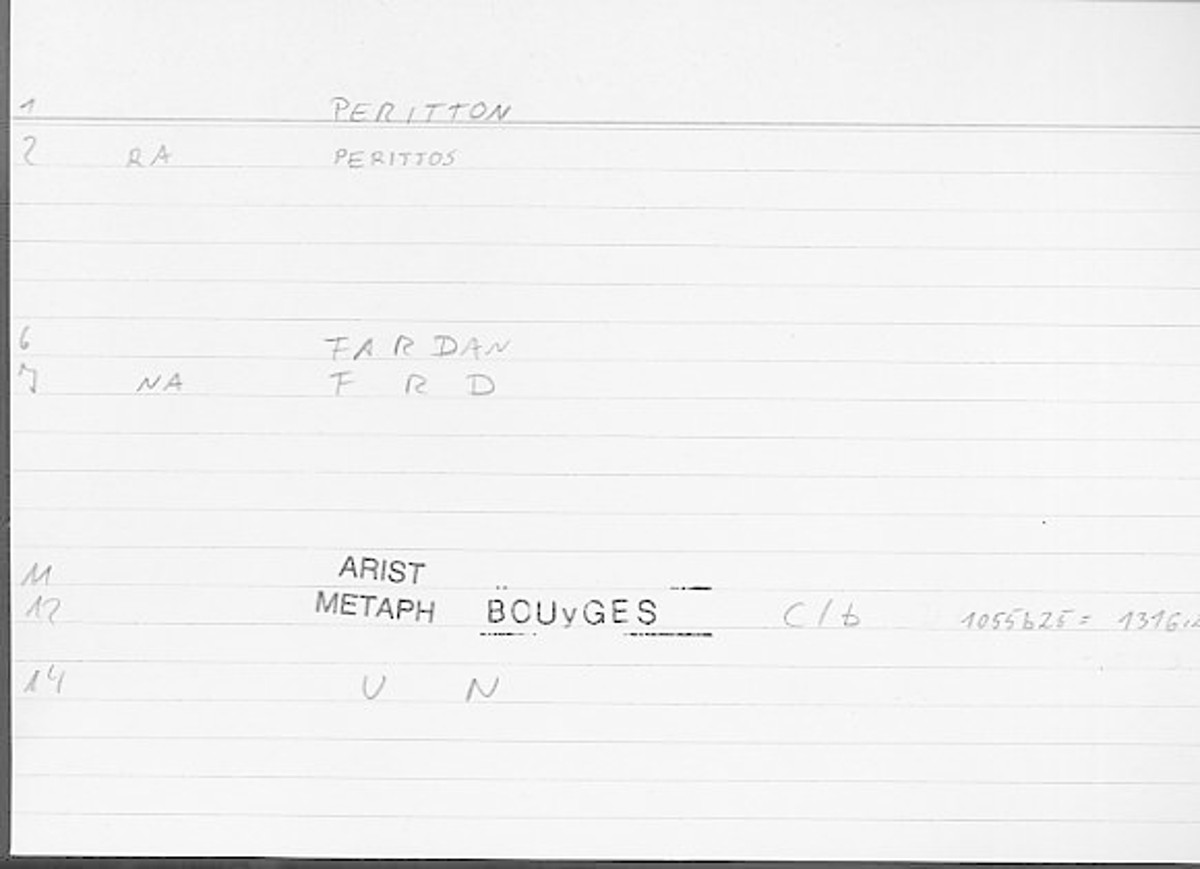 1 PERITTON
2 RA PERITTOS
6 FARDAN
7 NA F R D
11 ARIST
12 METAPH BOUyGES C/b 1055b25 = 1316,2
14 U N